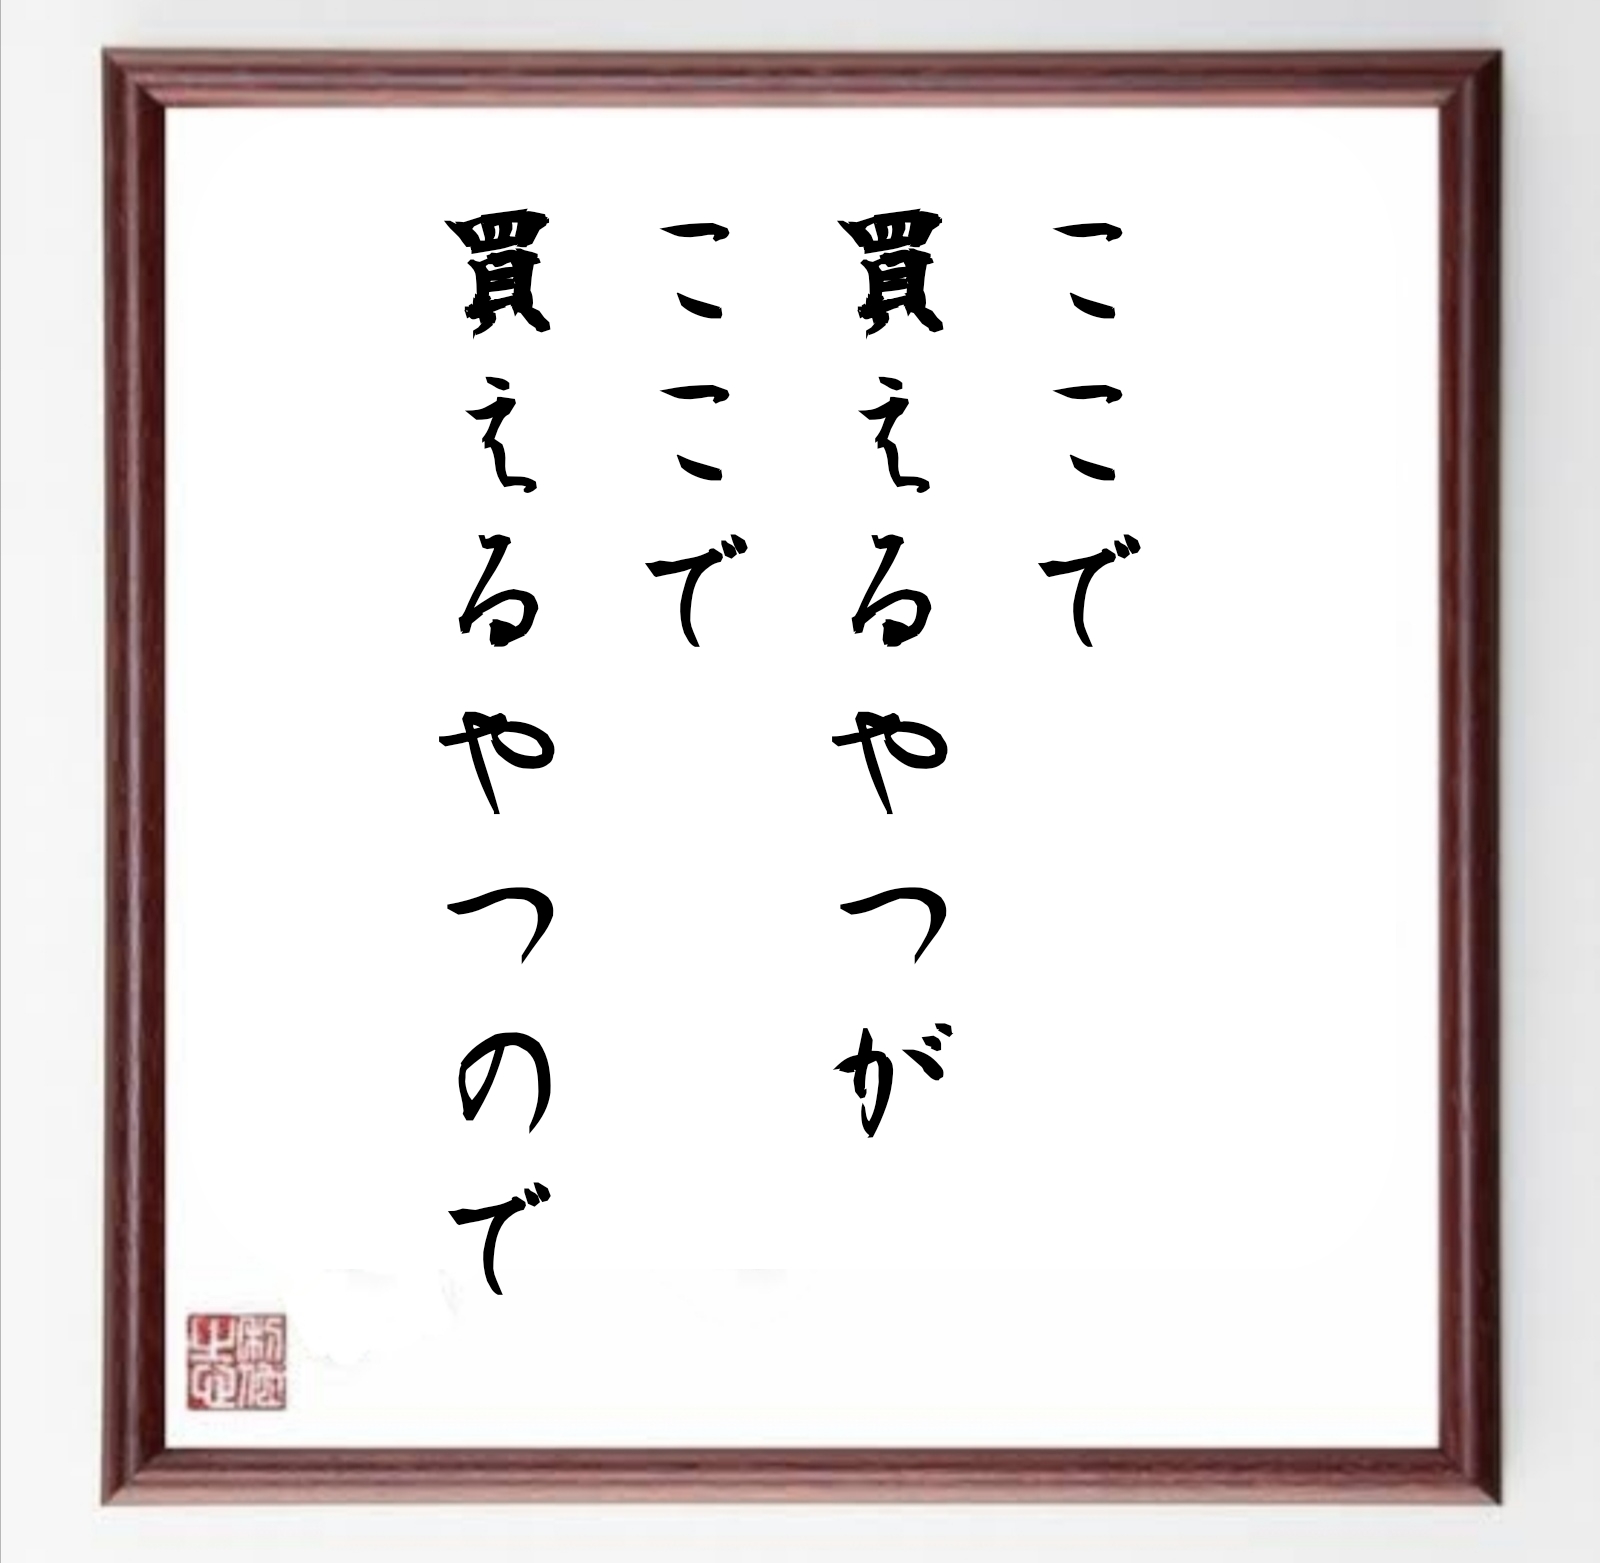 ここで
買えるやつが
ここで
買えるやつので